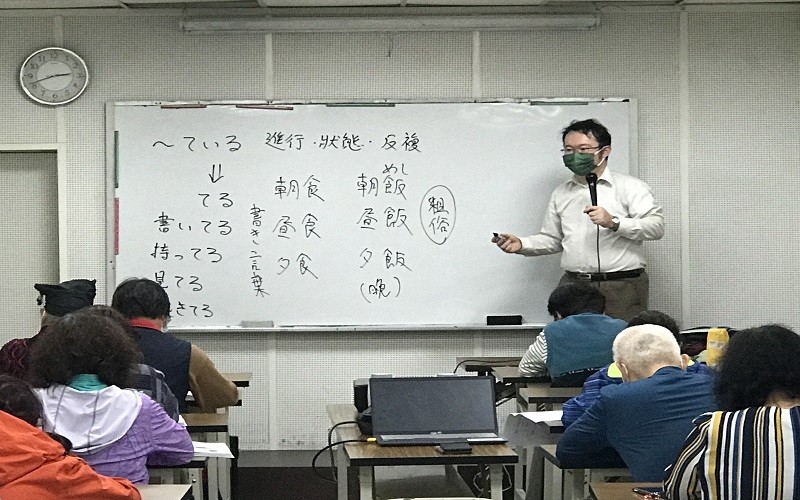 ～ている 進行・狀態・反複
⇓
てる
書いてる
持ってる
見てる
きてる
書き言葉
朝食
昼食
夕食
めし
朝飯
昼飯
夕飯
(晚)
粗俗